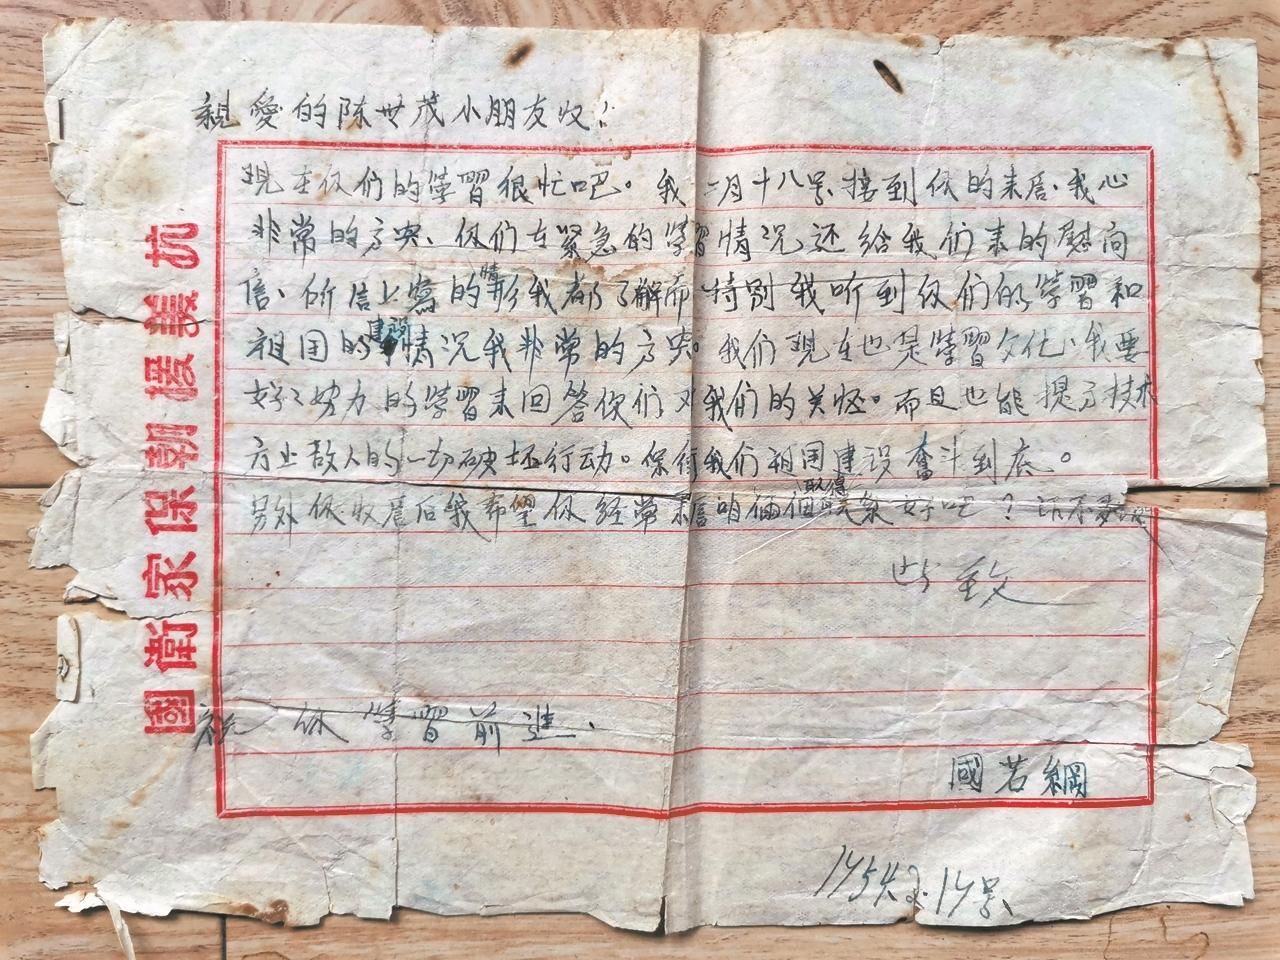 親愛的陈世茂小朋友收:
現在你们的學習很忙吧。我二月十八号、接到你的来信、我心
非常的方央、你们在緊急的學習情况还给我们来的慰问
信、所信上寫的情形我都了解而特别我听到你们的学習和
祖国的建設情况我非常的方央。我们現在也是學習文化、我要
好々努力的学習来回答你们对我们的关怀。而且也能提高技术
方止敌人的一切破坏行动。保衛我们祖国建设奮斗到底。
另外你收信后我希望你经常来信咱倆個取得联系好吧?话不多
此致
祝你學習前進、
國若綱
1954.2.19号
抗美援朝保家衛國